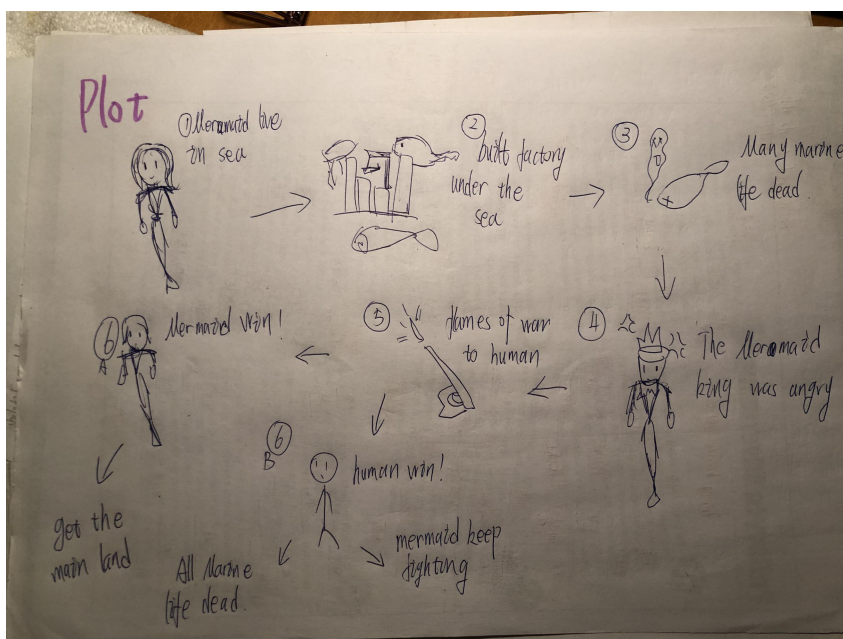 Plot
① Mermaid live
in sea
② built factory
under the
sea
③ Many marine
life dead.
④ The Mermaid
king was angry
⑤ flames of war
to human
⑥ A Mermaid win!
get the
main land
⑥ B human win!
All Marine
life dead.
mermaid keep
fighting